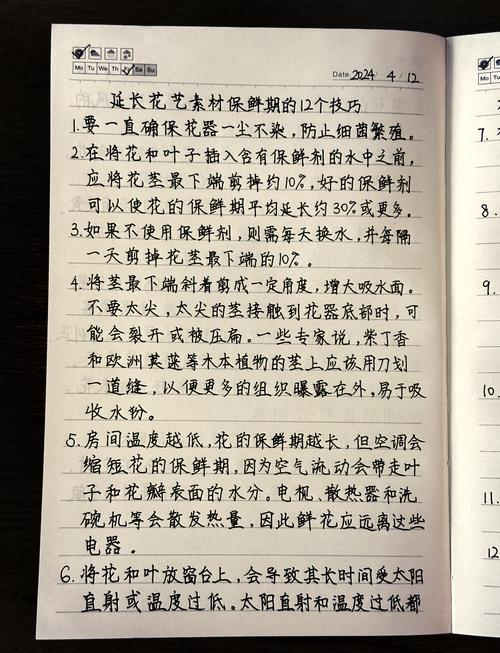 Mo Tu We Th Fr Sa Su
Date 2024 / 4 / 12
延长花艺素材保鲜期的12个技巧
1.要一直确保花器一尘不染，防止细菌繁殖。
2.在将花和叶子插入含有保鲜剂的水中之前，
应将花茎最下端剪掉约10%，好的保鲜剂
可以使花的保鲜期平均延长约30%或更多。
3.如果不使用保鲜剂，则需每天换水，并每隔
一天剪掉花茎最下端的10%。
4.将茎最下端斜着剪成一定角度，增大吸水面。
不要太尖，太尖的茎接触到花器底部时，可
能会裂开或被压扁。一些专家说，紫丁香
和欧洲荚蒾等木本植物的茎上应该用刀划
一道缝，以便更多的组织曝露在外，易于吸
收水份。
5.房间温度越低，花的保鲜期越长，但空调会
缩短花的保鲜期，因为空气流动会带走叶
子和花瓣表面的水分。电视、散热器和洗
碗机等会散发热量，因此鲜花应远离这些
电器。
6.将花和叶放窗台上，会导致其长时间受太阳
直射或温度过低。太阳直射和温度过低都
Mo Tu
7.
8.
9.
10.
11.
12